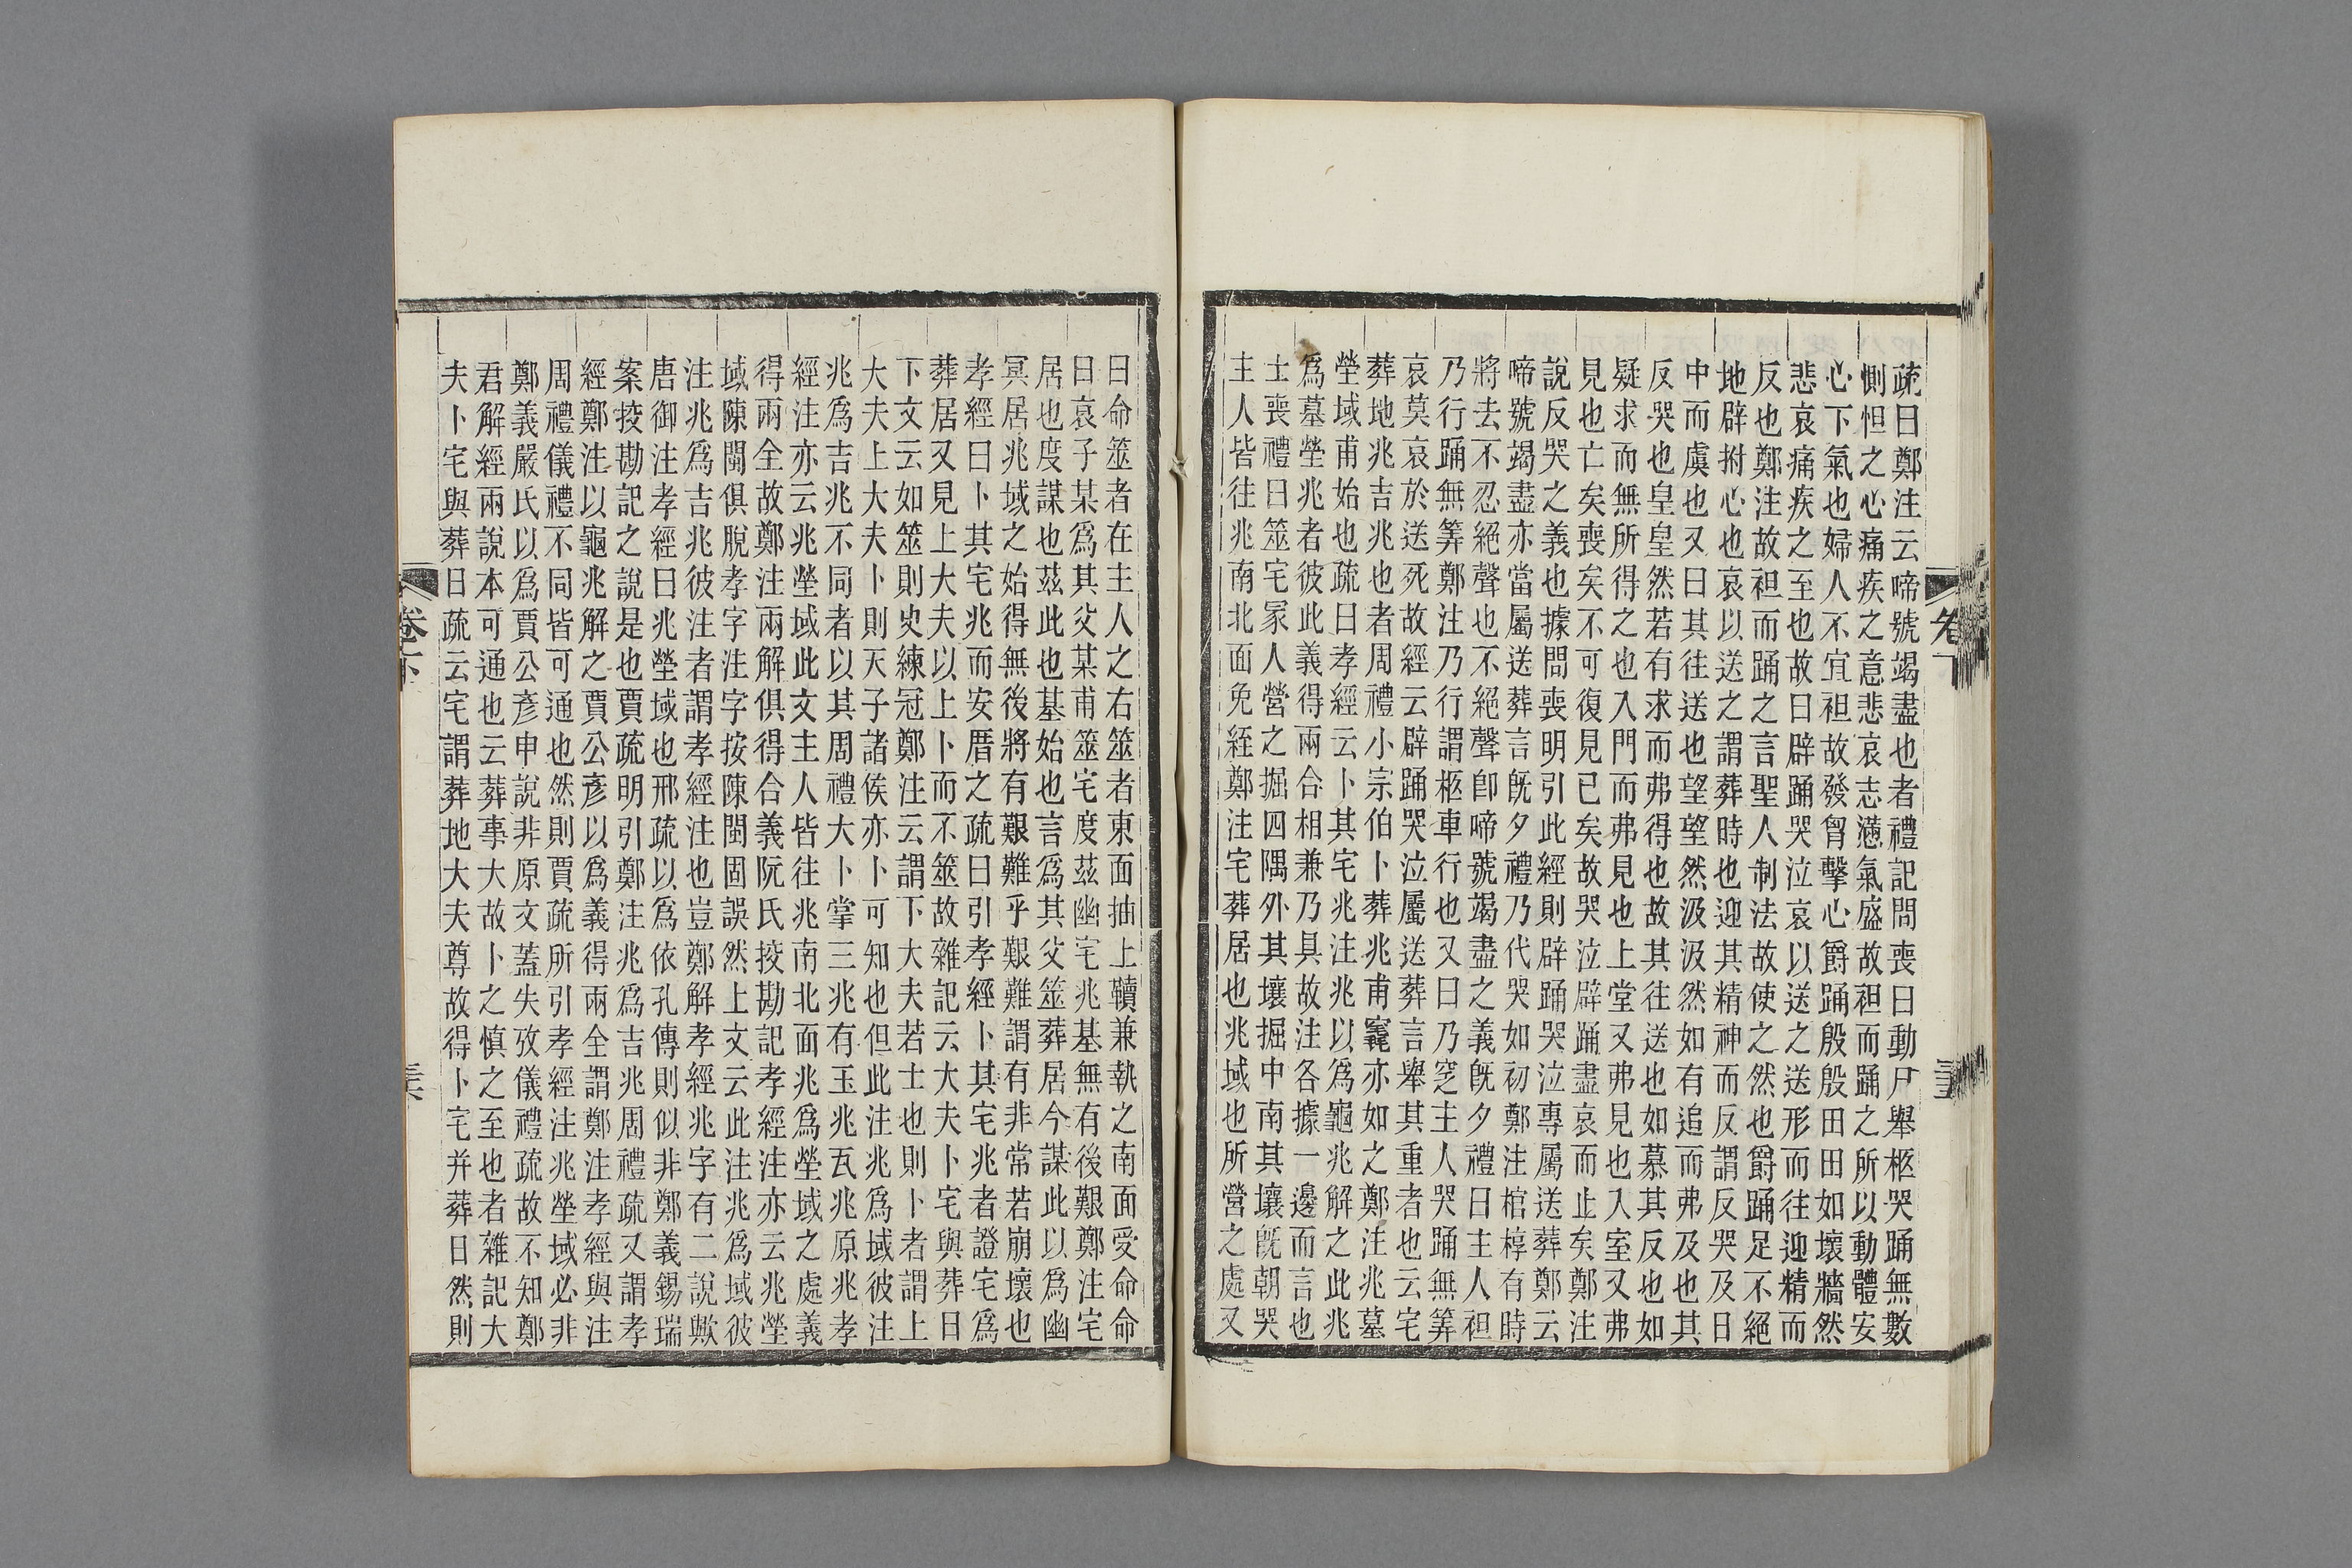 疏曰鄭注云啼號竭盡也者禮記問喪曰動尸舉柩哭踊無數
惻怛之心痛疾之意悲哀志懣氣盛故袒而踊之所以動體安
心下氣也婦人不宜袒故發胷擊心爵踊殷殷田田如壞牆然
悲哀痛疾之至也故曰辟踊哭泣哀以送之送形而往迎精而
反也鄭注故袒而踊之言聖人制法故使之然也爵踊足不絕
地辟拊心也哀以送之謂葬時也迎其精神而反謂反哭及日
中而虞也又曰其往送也望望然汲汲然如有追而弗及也其
反哭也皇皇然若有求而弗得也故其往送也如慕其反也如
疑求而無所得之也入門而弗見也上堂又弗見也入室又弗
見也亡矣喪矣不可復見已矣故哭泣辟踊盡哀而止矣鄭注
說反哭之義也據問喪明引此經則辟踊哭泣專屬送葬鄭云
啼號竭盡亦當屬送葬言旣夕禮乃代哭如初鄭注棺椁有時
將去不忍絕聲也不絕聲卽啼號竭盡之義旣夕禮曰主人袒
乃行踊無筭鄭注乃行謂柩車行也又曰乃窆主人哭踊無筭
哀莫哀於送死故經云辟踊哭泣屬送葬言舉其重者也云宅
葬地兆吉兆也者周禮小宗伯卜葬兆甫竁亦如之鄭注兆墓
塋域甫始也疏曰孝經云卜其宅兆注兆以爲龜兆解之此兆
爲墓塋兆者彼此義得兩合相兼乃具故注各據一邊而言也
士喪禮曰筮宅冢人營之掘四隅外其壤掘中南其壤旣朝哭
主人皆往兆南北面免絰鄭注宅葬居也兆域也所營之處又
曰命筮者在主人之右筮者東面抽上韇兼執之南面受命命
曰哀子某爲其父某甫筮宅度茲幽宅兆基無有後艱鄭注宅
居也度謀也茲此也基始也言爲其父筮葬居今謀此以爲幽
冥居兆域之始得無後將有艱難乎艱難謂有非常若崩壞也
孝經曰卜其宅兆而安厝之疏曰引孝經卜其宅兆者證宅爲
葬居又見上大夫以上卜而不筮故雜記云大夫卜宅與葬日
下文云如筮則史練冠鄭注云謂下大夫若士也則卜者謂上
大夫上大夫卜則天子諸侯亦卜可知也但此注兆爲域彼注
兆爲吉兆不同者以其周禮大卜掌三兆有玉兆瓦兆原兆孝
經注亦云兆塋域此文主人皆往兆南北面兆爲塋域之處義
得兩全故鄭注兩解俱得合義阮氏挍勘記孝經注亦云兆塋
域陳閩俱脫孝字注字按陳閩固誤然上文云此注兆爲域彼
注兆爲吉兆彼注者謂孝經注也豈鄭解孝經兆字有二說歟
唐御注孝經曰兆塋域也邢疏以爲依孔傳則似非鄭義錫瑞
案挍勘記之說是也賈疏明引鄭注兆爲吉兆周禮疏又謂孝
經鄭注以龜兆解之賈公彥以爲義得兩全謂鄭注孝經與注
周禮儀禮不同皆可通也然則賈疏所引孝經注兆塋域必非
鄭義嚴氏以爲賈公彥申說非原文蓋失攷儀禮疏故不知鄭
君解經兩說本可通也云葬事大故卜之愼之至也者雜記大
夫卜宅與葬日疏云宅謂葬地大夫尊故得卜宅并葬日然則
卷下
三六